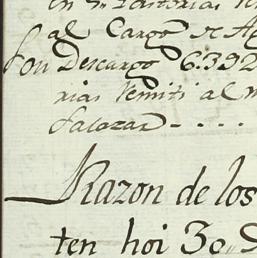 al Cargo
Son Descargo 6.392
rias Remiti al
Salazar - - - -
Razon de los
ten hoi 30